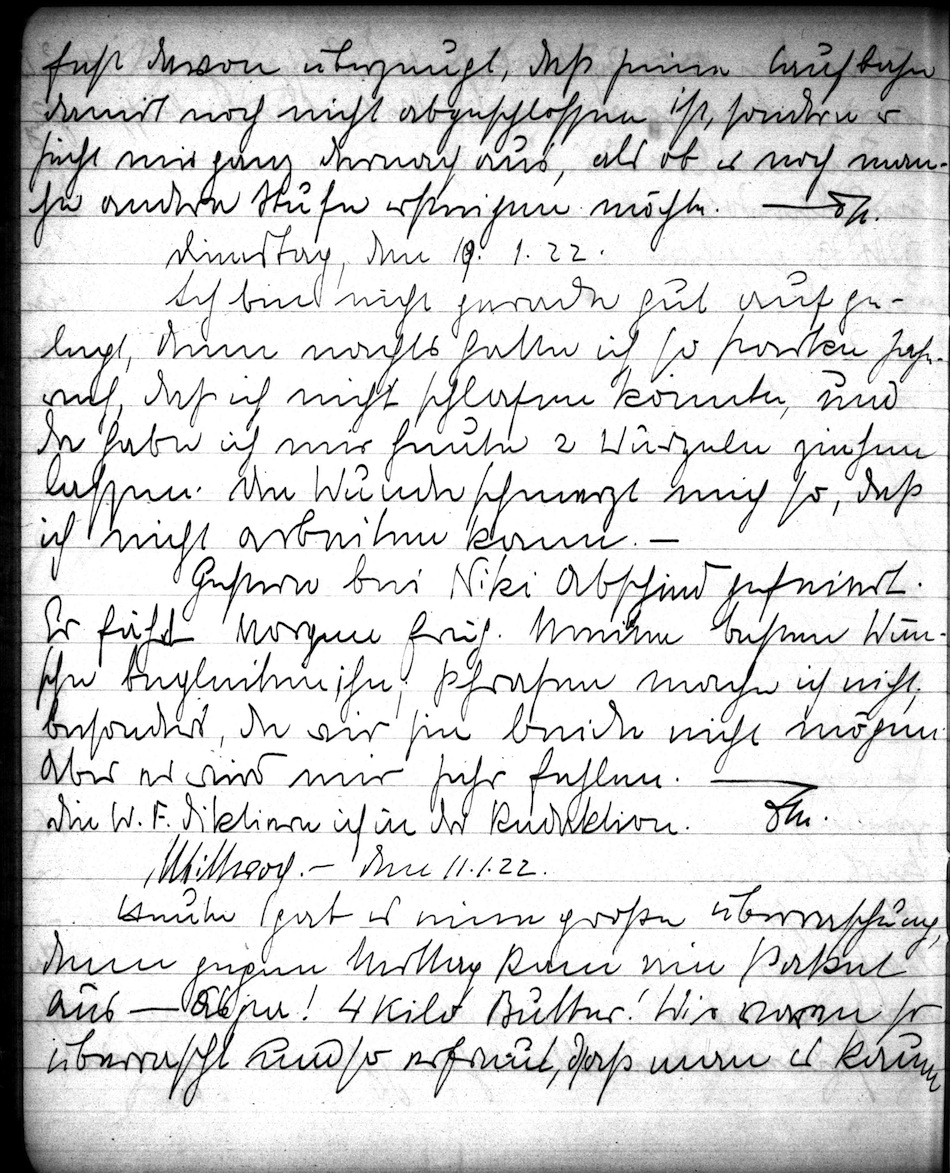 fest davon überzeugt, daß seine Laufbahn
damit noch nicht abgeschlossen ist, sondern er
sieht mir ganz darnach aus, als ob er noch man-
che andere Stufe ersteigen möchte. —
Dienstag, den 10. 1. 22.
Ich bin nicht gerade gut aufge-
legt, denn nachts hatte ich so starken Zahn-
weh, daß ich nicht schlafen konnte, und
da habe ich mir heute 2 Wurzeln ziehen
lassen. Die Wunde schmerzt mich so, daß
ich nicht arbeiten kann. —
Gestern bei Niki Abschied gefeiert.
Er fährt morgen früh. Meine besten Wün-
sche begleiten ihn; Phrasen mache ich nicht,
besonders, da wir sie beide nicht mögen.
Aber er wird mir sehr fehlen. —
Die W. F. diktiere ich in der Redaktion.
Mittwoch. – den 11.1.22.
Heute gab es eine große Überraschung,
denn gegen Mittag kam ein Paket
aus — ! 4 Kilo Butter! Wir waren so
überrascht und so erfreut, daß man es kaum